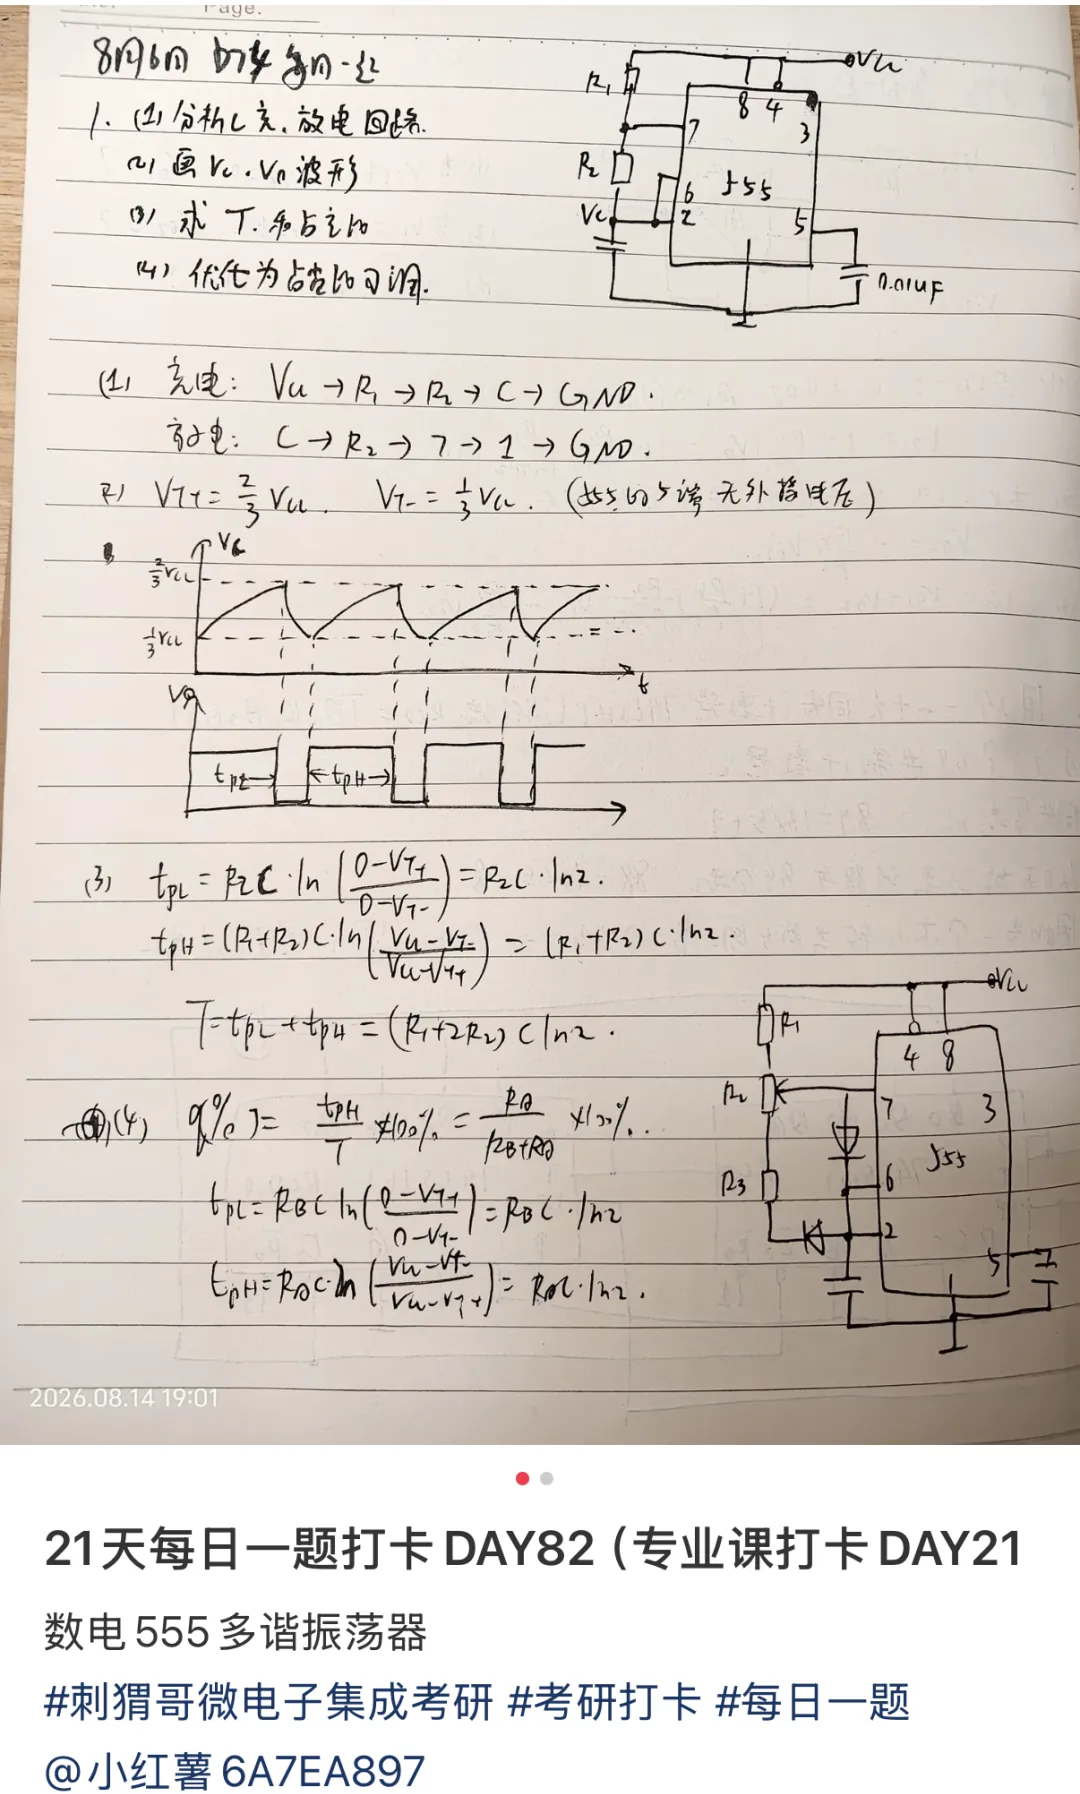 Page.
8月6日 数字 每日一题
1. (1) 分析C充、放电回路.
(2) 画Vc、Vo波形
(3) 求 T、和占空比
(4) 优化为占空比可调.
R₁
R₂
Vc
Vcc
8 4
3
7
6
2
555
5
0.01uF
(1) 充电: Vcc → R₁ → R₂ → C → GND.
放电: C → R₂ → 7 → 1 → GND.
2) VT+ = 2/3 Vcc. VT- = 1/3 Vcc. (555的5端 无外接电压)
Vc
2/3 Vcc
1/3 Vcc
t
Vo
tpL
tpH
(3) tpL = R₂C·ln((0-VT+)/(0-VT-)) = R₂C·ln2.
tpH = (R₁+R₂)C·ln((Vcc-VT-)/(Vcc-VT+)) = (R₁+R₂)C·ln2.
T = tpL + tpH = (R₁+2R₂)C ln2.
(4) q% = tpH/T ×100% = RA/(RB+RA) ×100%.
tpL = RBC ln((0-VT+)/(0-VT-)) = RBC·ln2
tpH = RAC·ln((Vcc-VT-)/(Vcc-VT+)) = RAC·ln2.
Vcc
R₁
4 8
R₂
7
3
R3
6
555
2
5
2026.08.14 19:01
21天每日一题打卡DAY82（专业课打卡DAY21
数电555多谐振荡器
#刺猬哥微电子集成考研 #考研打卡 #每日一题
@小红薯6A7EA897